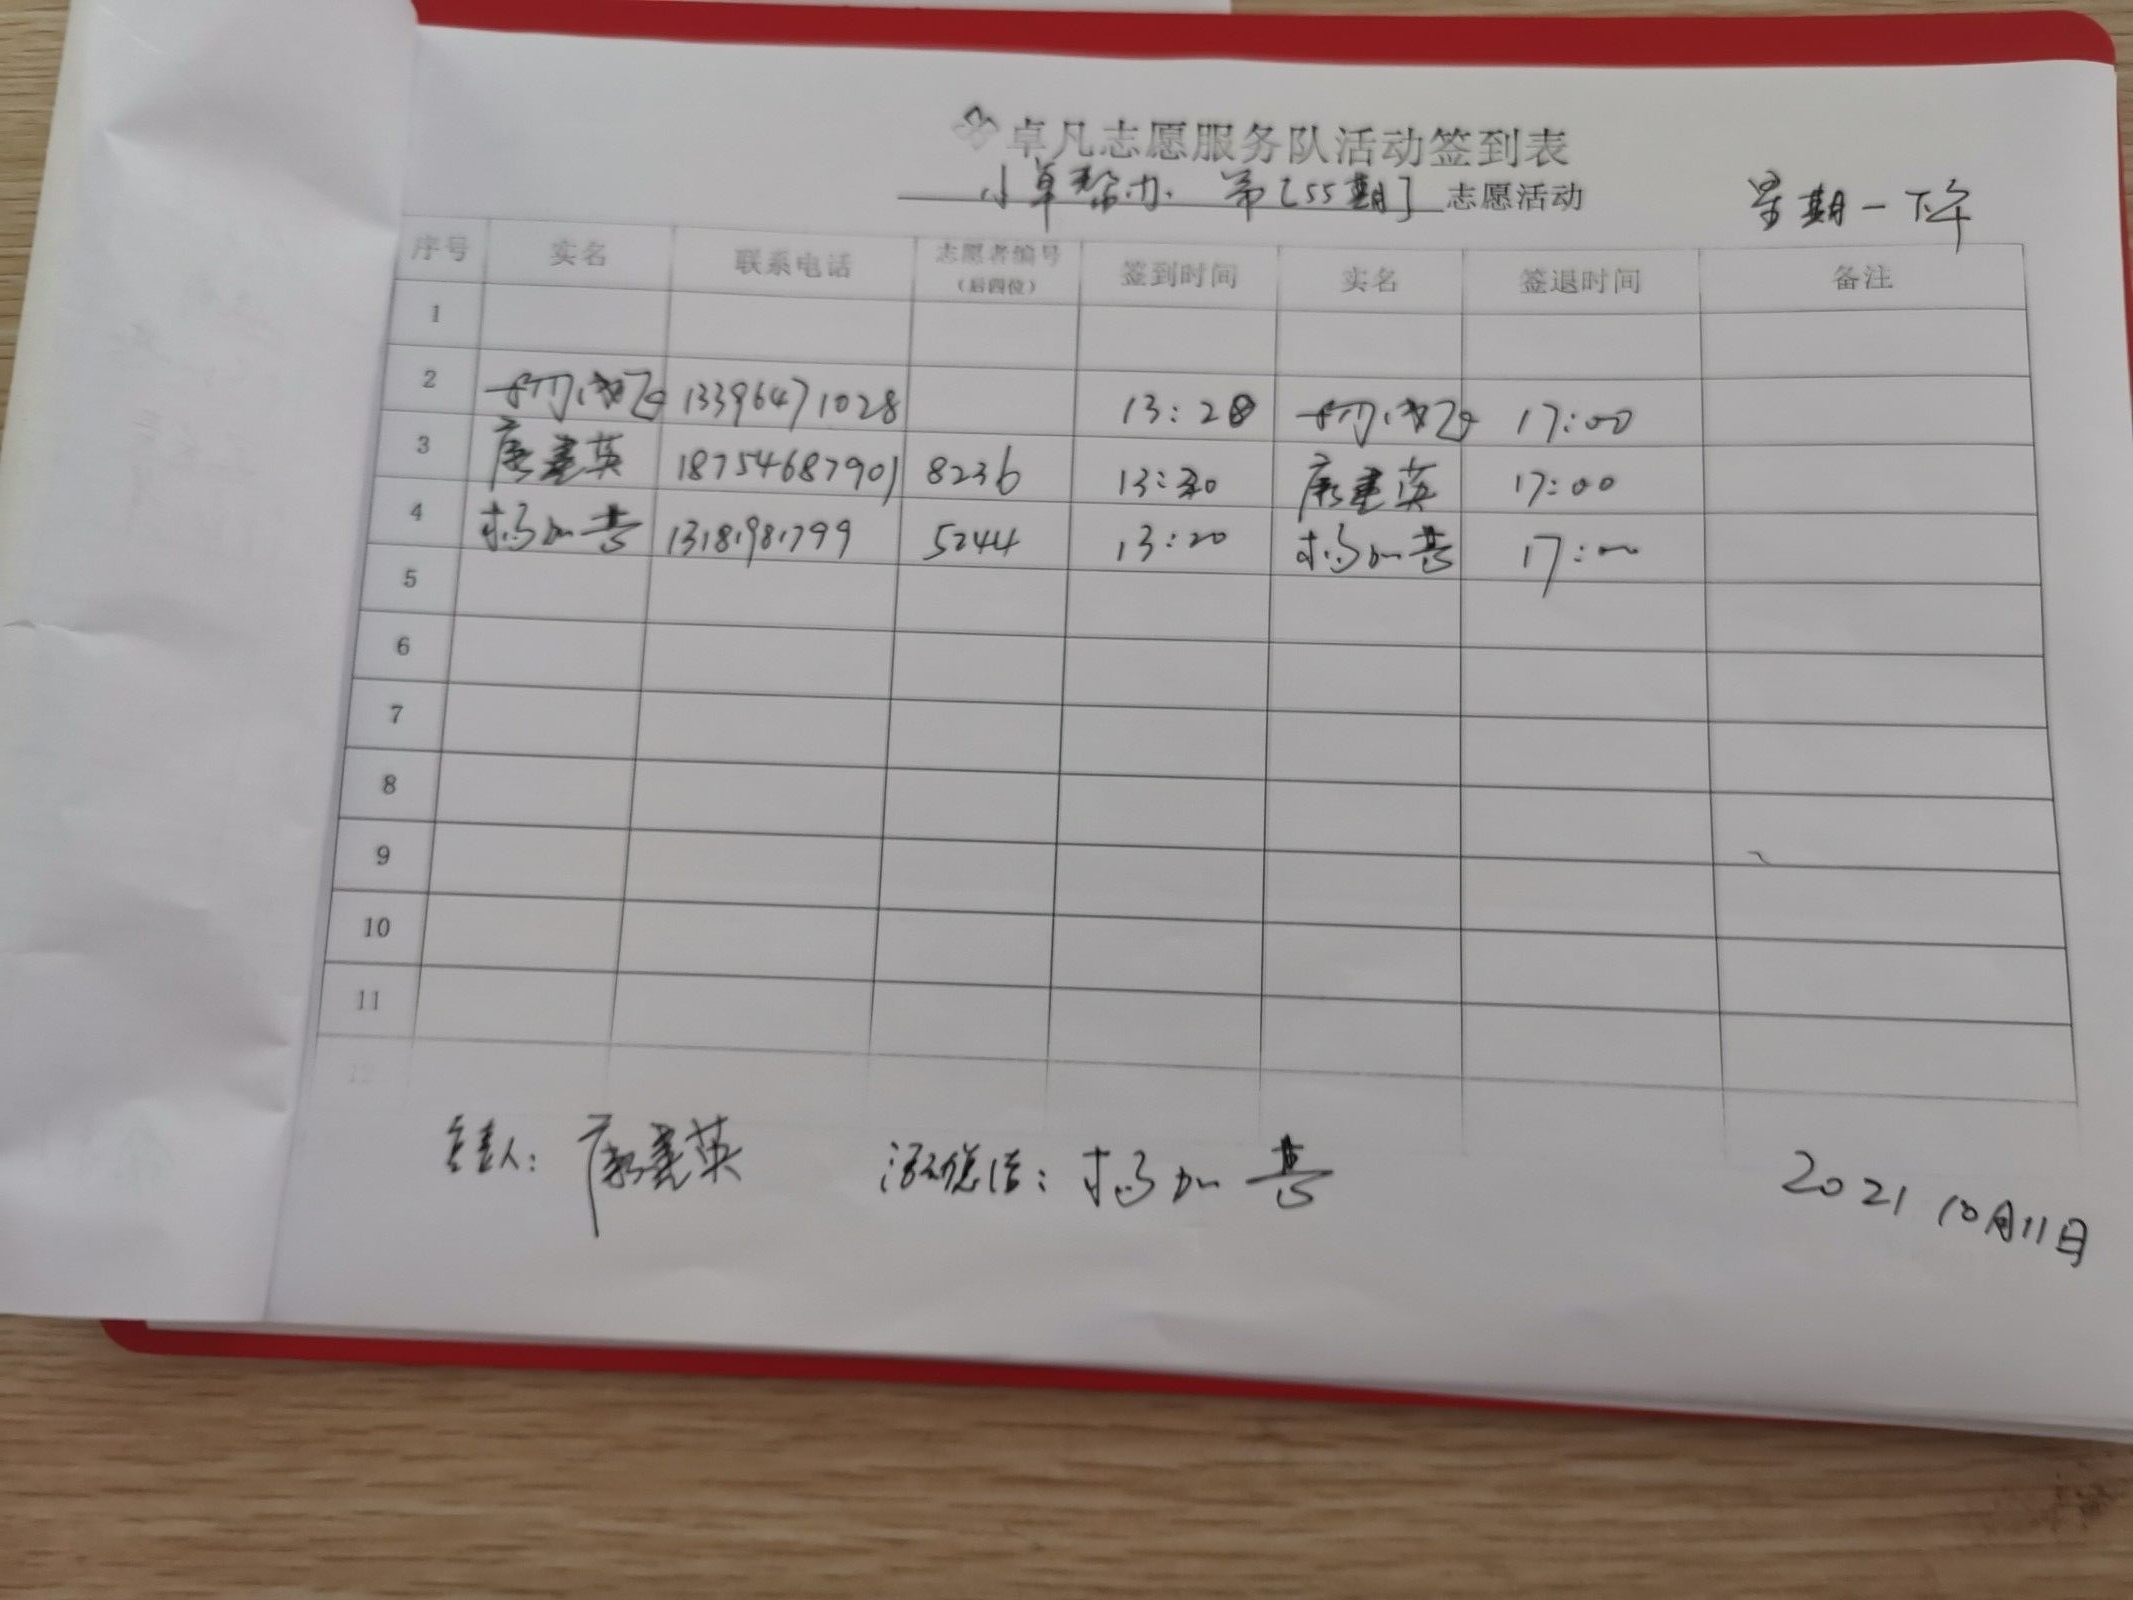 卓凡志愿服务队活动签到表
小卓帮办 第[55期] 志愿活动 星期一下午
序号 实名 联系电话 志愿者编号(后四位) 签到时间 实名 签退时间 备注
1
2 13396471028 13:20 17:00
3 康建英 18754687901 8236 13:30 康建英 17:00
4 杨加芸 13181981799 5244 13:20 杨加芸 17:00
5
6
7
8
9
10
11
12
负责人: 康建英 活动总结: 杨加芸 2021 10月11日